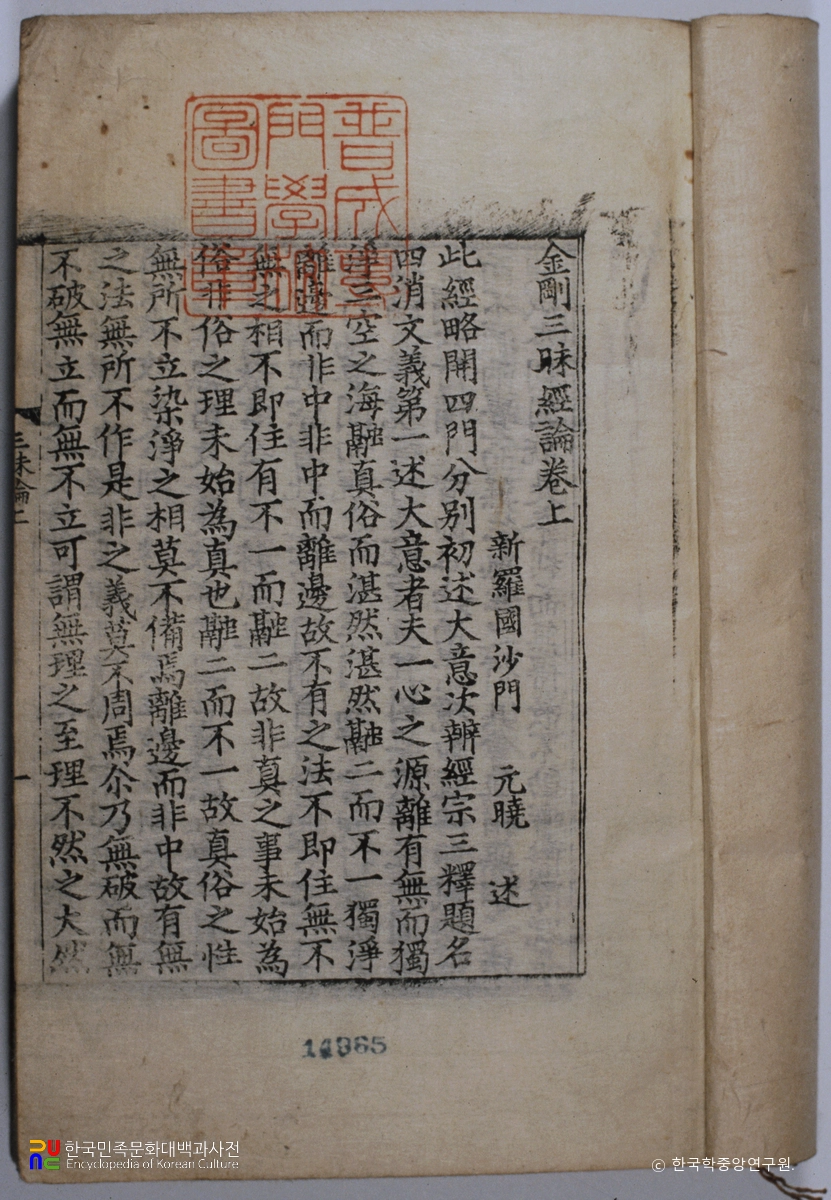 金剛三昧經論卷上
新羅國沙門 元曉 述
此經略開四門分別初述大意次辨經宗三釋題名
四消文義第一述大意者夫一心之源離有無而獨
淨三空之海融真俗而湛然湛然融二而不一獨淨
離邊而非中非中而離邊故不有之法不即住無不
無之相不即住有不一而融二故非真之事未始為
俗非俗之理未始為真也融二而不一故真俗之性
無所不立染淨之相莫不備焉離邊而非中故有無
之法無所不作是非之義莫不周焉尒乃無破而無
不破無立而無不立可謂無理之至理不然之大然
三昧論上
一
普成專
門學校
圖書館
14965
한국민족문화대백과사전
Encyclopedia of Korean Culture
© 한국학중앙연구원